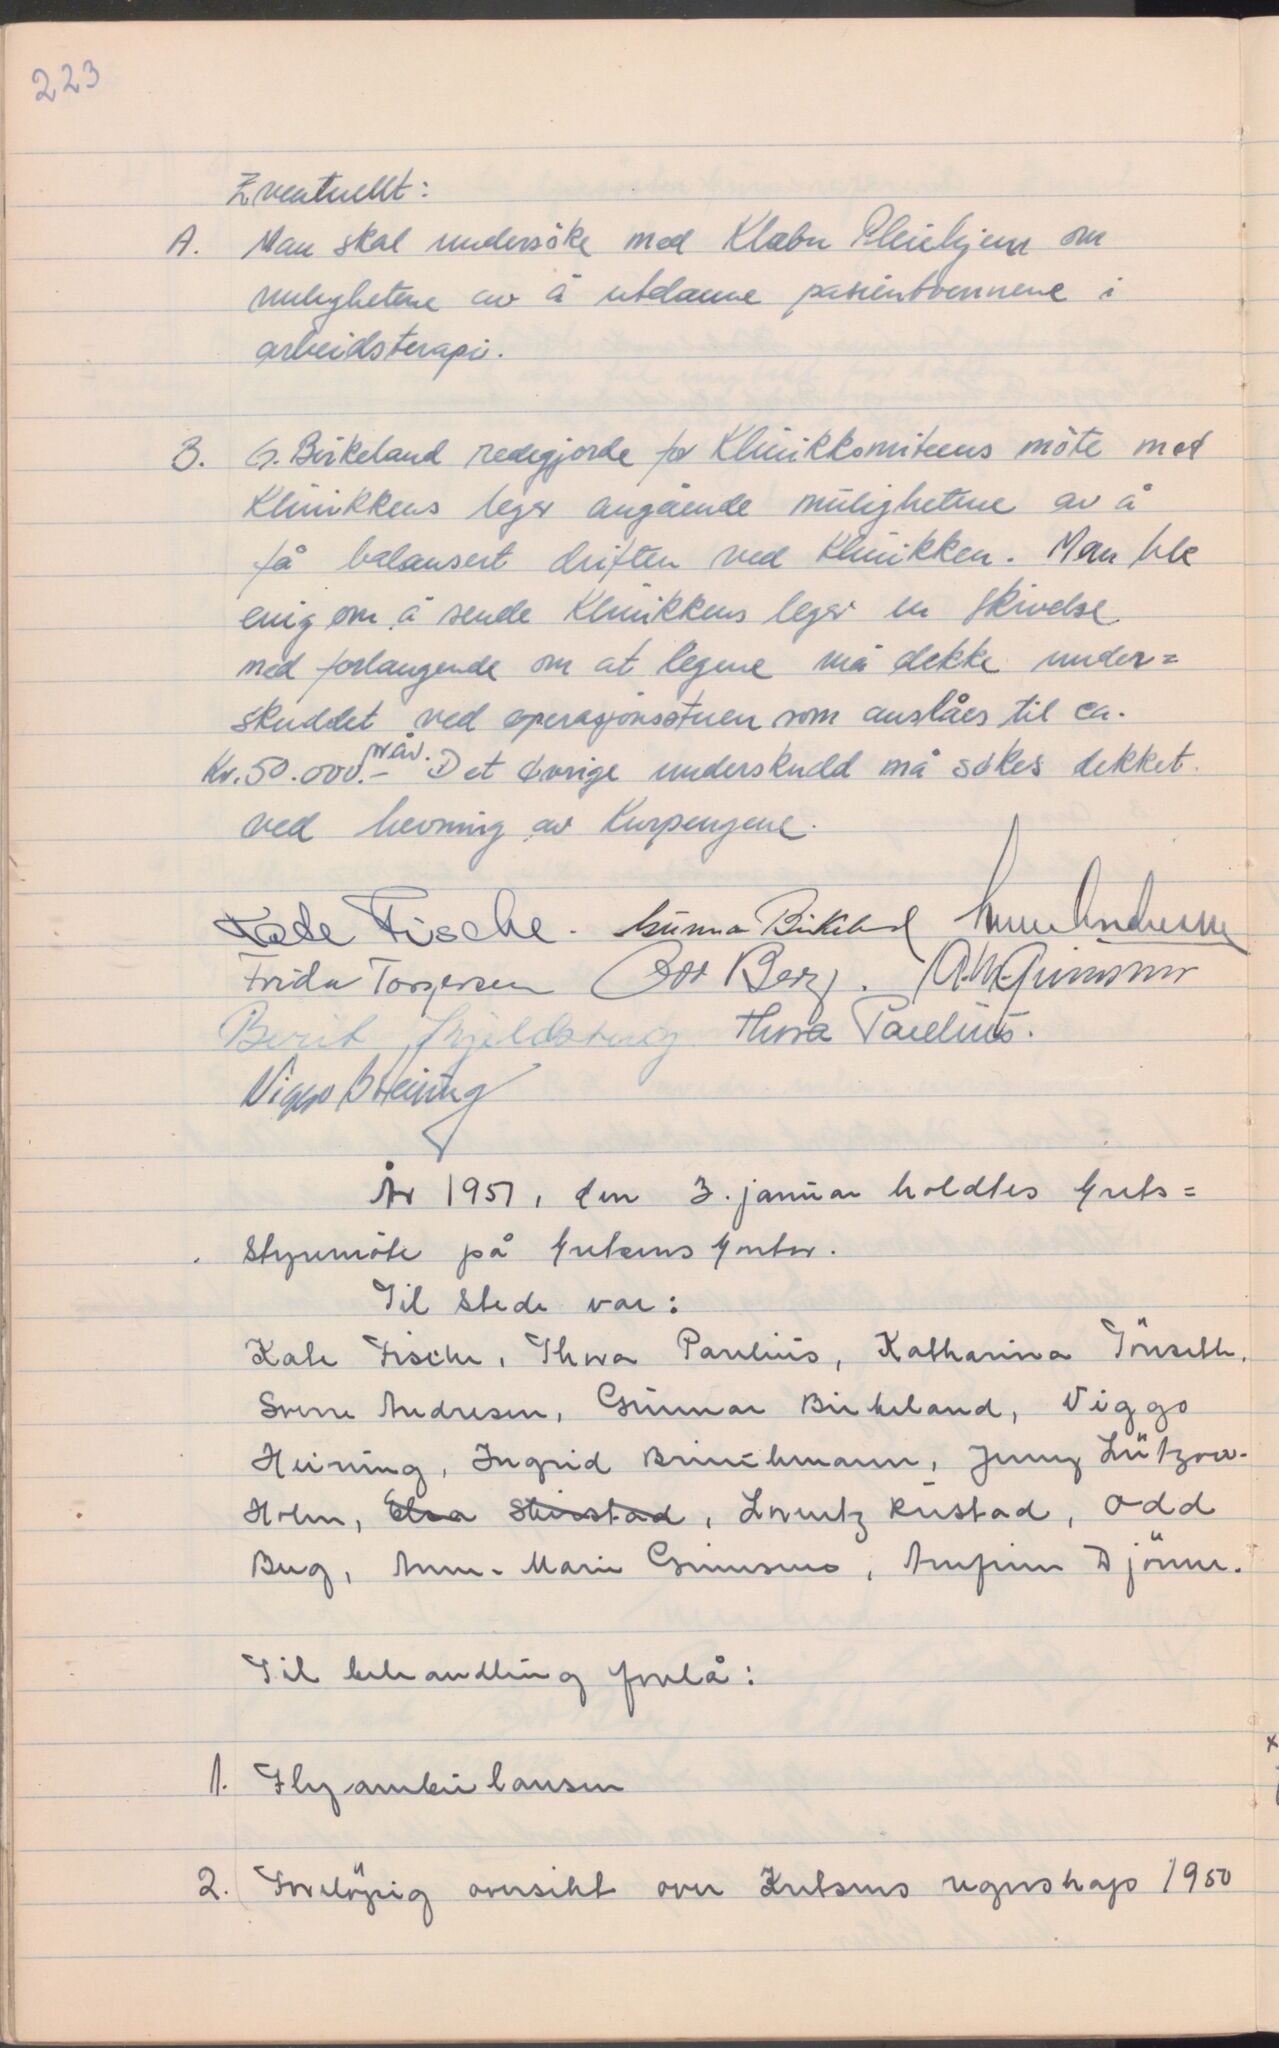 223
Eventuellt:
A. Man skal undersöke med Klæbu Pleiehjem om
mulighetene av å utdanne pasientvennene i
arbeidsterapi.
B. G. Birkeland redegjorde for Klinikkomiteens möte med
Klinikkens leger angående mulighetene av å
få balansert driften ved Klinikken. Man ble
enig om å sende Klinikkens leger en skrivelse
med forlangende om at legene må dekke under=
skuddet ved operasjonsstuen som anslåes til ca.
Kr. 50.000.- pr år. Det øvrige underskudd må søkes dekket
ved hevning av Kurpengene.
Kate Fische. Gunnar Birkeland Sverre Andresen
Frida Torgersen Odd Berg. A.M. Grimsmo
Berit Thora Paulius.
Viggo Heining
År 1951, den 3. januar holdtes krets=
styremöte på kretsens kontor.
Til stede var:
Kate Fische, Thora Paulius, Katharina Tönseth,
Sverre Andresen, Gunnar Birkeland, Viggo
Heining, Ingrid Brinchmann, Jenny Lützow-
Holm, Elsa Steinstad, Lorentz Rustad, Odd
Berg, Anne-Marie Grimsmo, Arnfinn Djönne.
Til behandling forelå:
1. Flyambulansen
2. Forelöpig oversikt over Kretsens regnskap 1950